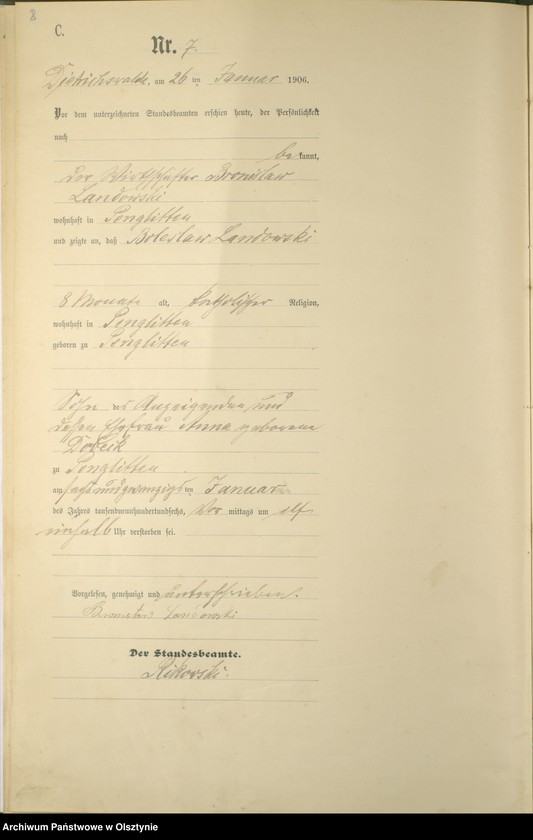 8
C.
Nr. 7.
Dietrichswalde, am 26 ten Januar 1906.
Vor dem unterzeichneten Standesbeamten erschien heute, der Persönlichkeit
nach
be kannt,
der Wirtschafter Bronislaw
Landowski
wohnhaft in Penglitten
und zeigte an, daß Boleslaw Landowski
8 Monate alt, katholischer Religion,
wohnhaft in Penglitten
geboren zu Penglitten
Sohn des Anzeigenden und
dessen Ehefrau Anna geborene
zu Penglitten
am sechsundzwanzigsten Januar
des Jahres tausendneunhundertundsechs, Vor mittags um elf
einhalb Uhr verstorben sei.
Vorgelesen, genehmigt und unterschrieben.
Landowski
Der Standesbeamte.
Rikowski.
Archiwum Państwowe w Olsztynie